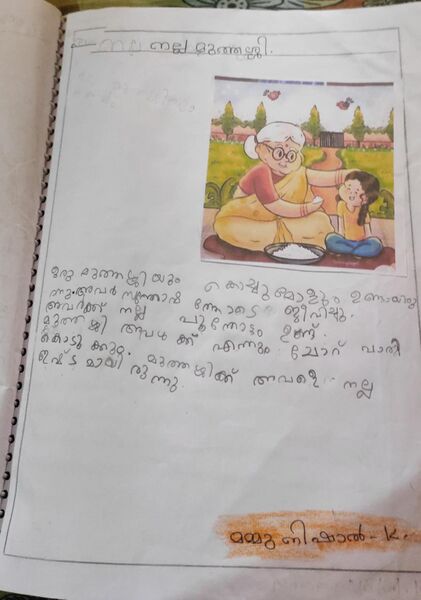 നല്ല മുത്തശ്ശി.
ഒരു മുത്തശ്ശിയും കൊച്ചുമോളും ഉണ്ടായിരു
ന്നു. അവർ സന്തോഷ ത്തോടെ ജീവിച്ചു.
അവർക്ക് നല്ല പൂന്തോട്ടം ഉണ്ട്.
മുത്തശ്ശി അവൾ ക്ക് എന്നും ചോറ് വാരി
കൊടുക്കും. മുത്തശ്ശിക്ക് അവളെ നല്ല
ഇഷ്ട മായി രുന്നു.
മമ്മു നിഷാൽ - K.